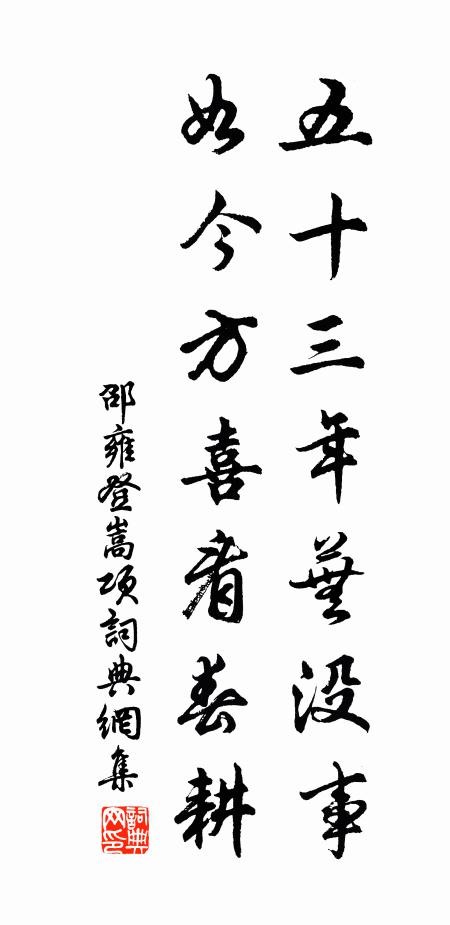 五十三年蕪没事
如今方喜看春耕
邵雍登嵩項詞典網集
詞典網印